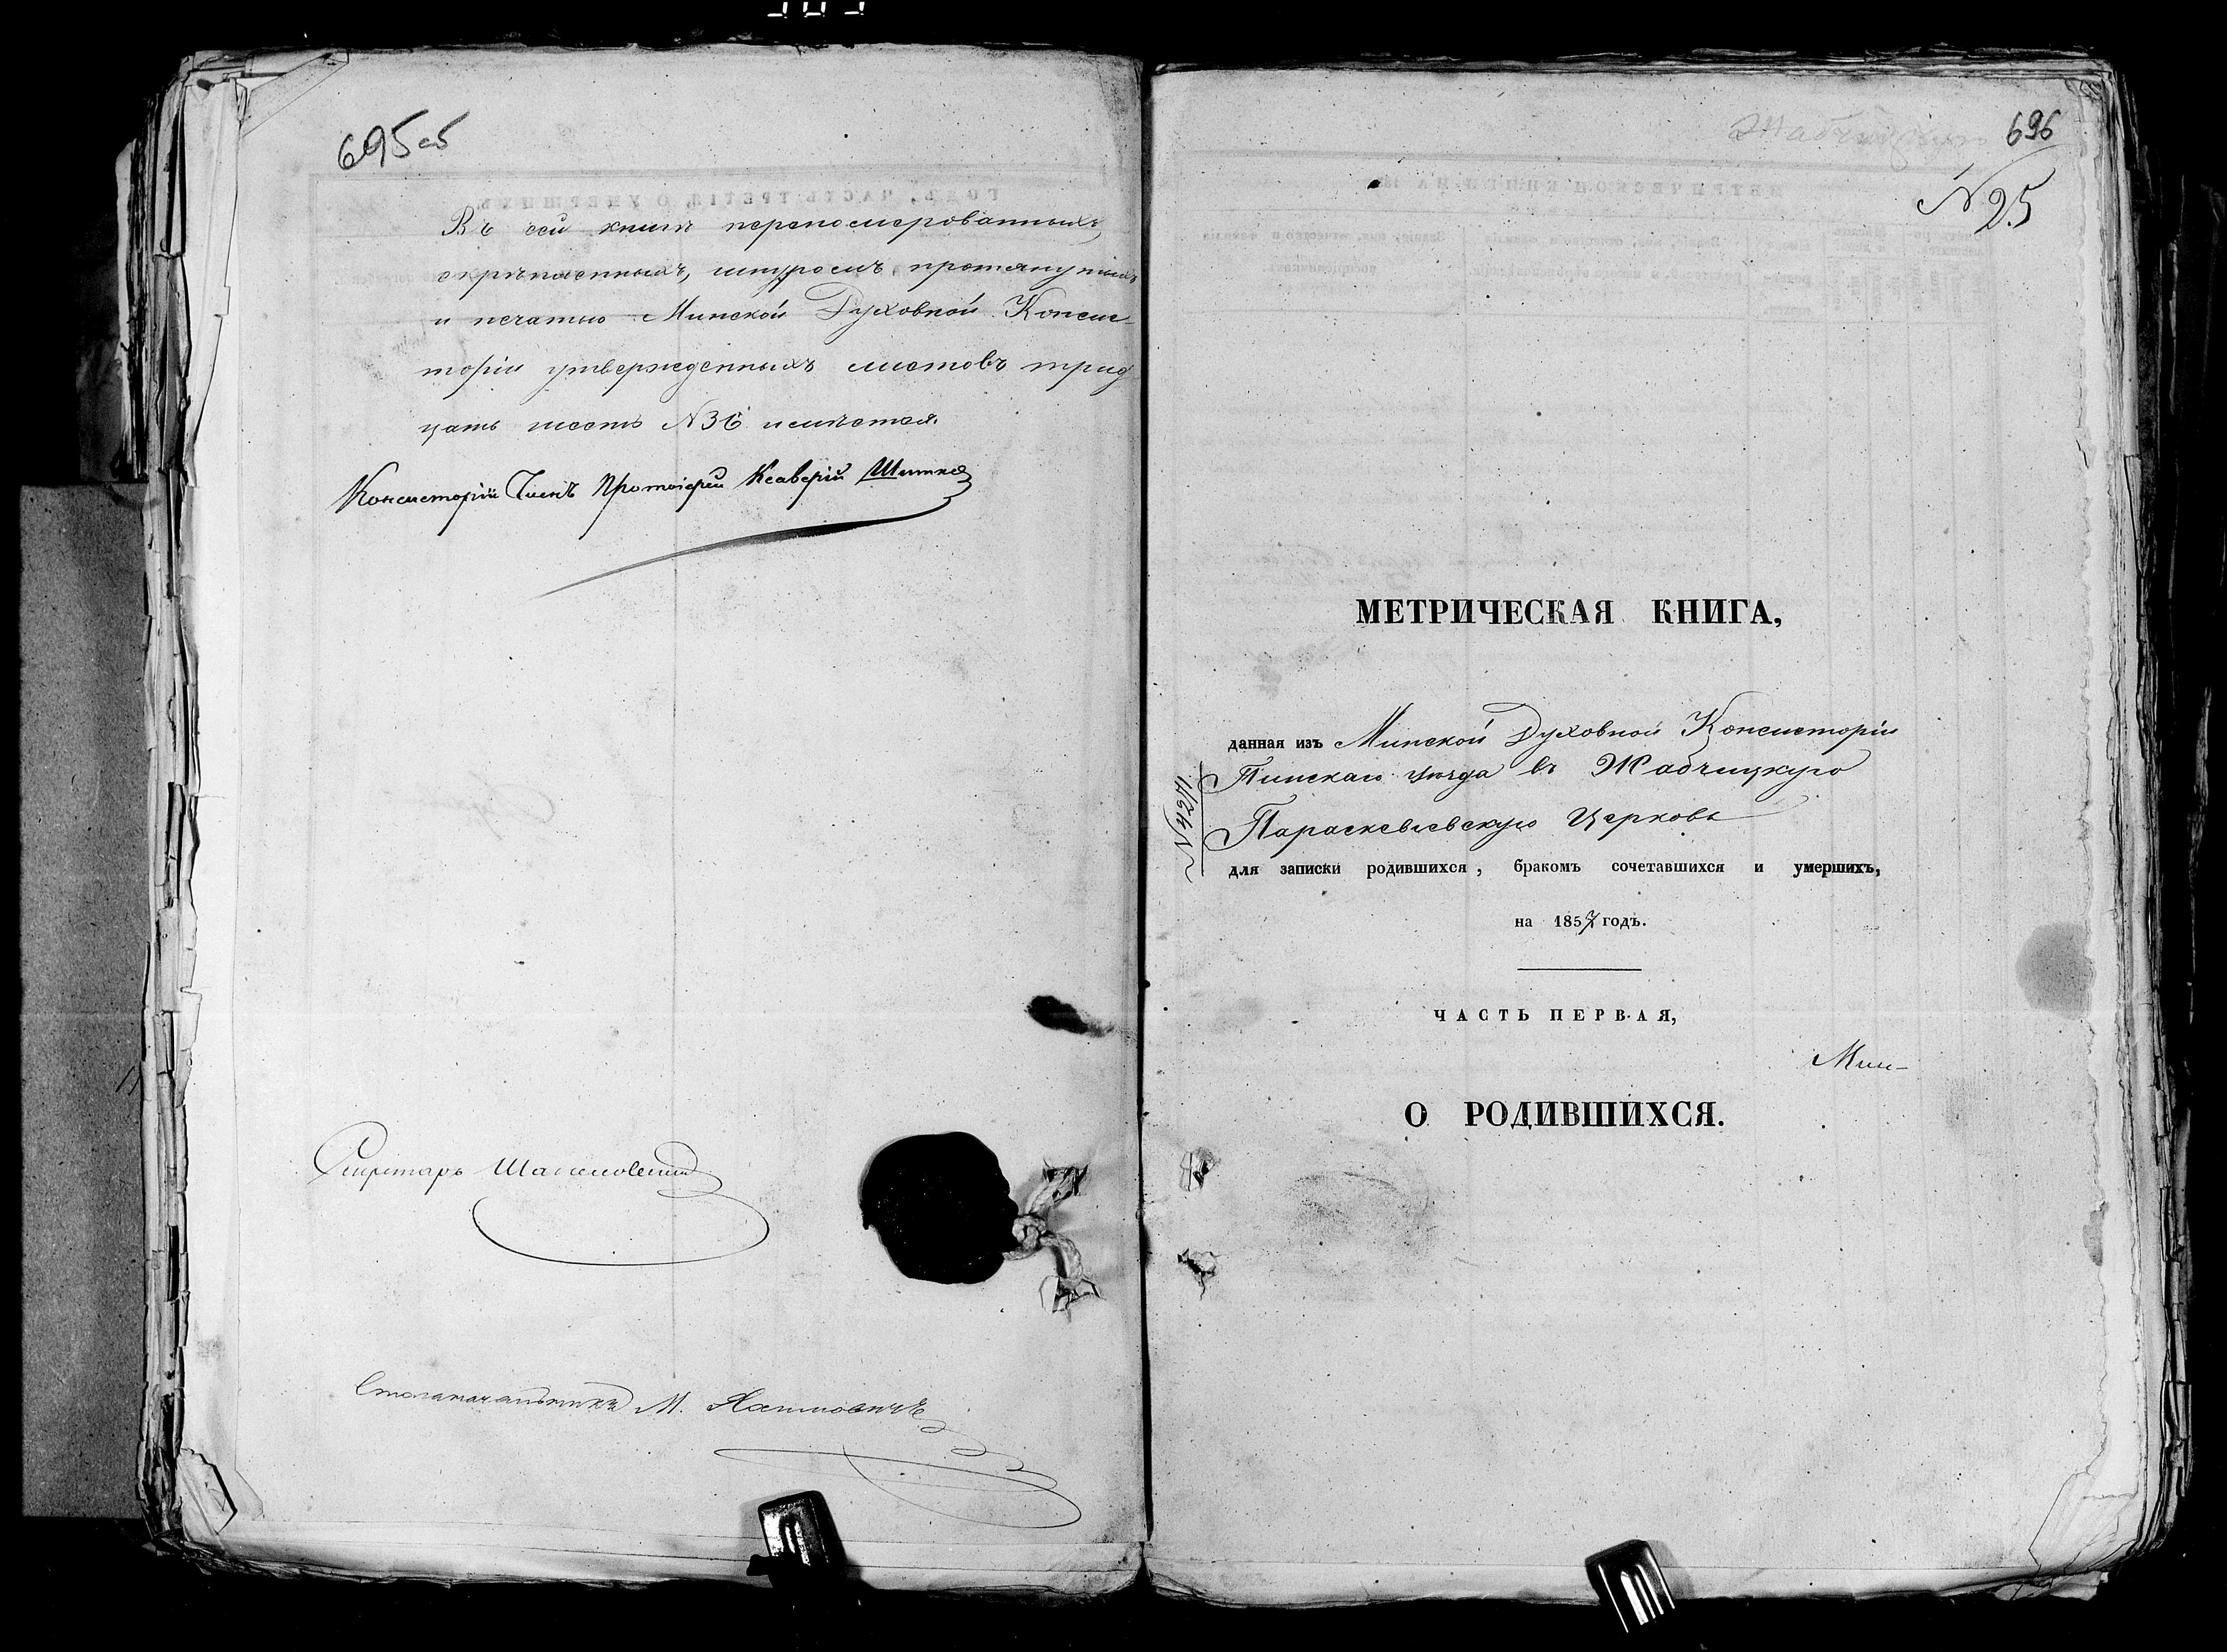 695 об
Въ сей книгѣ переномерованныхъ,
скрѣпленныхъ, шнуромъ протянутыхъ
и печатью Минской Духовной Консис-
торіи утвержденныхъ листовъ трид
цать шесть №36 исчѣтая.
Консисторіи Членъ Протоіерей Ксаверій
Секретарь
Столоначальникъ М.
696
№ 25
МЕТРИЧЕСКАЯ КНИГА,
данная изъ Минской Духовной Консисторіи
Пинскаго уѣзда въ Жабчицкую
Параскевіевскую Церковь
для записки родившихся, бракомъ сочетавшихся и умершихъ,
на 1857 годъ.
ЧАСТЬ ПЕРВАЯ,
Мин-
О РОДИВШИХСЯ.